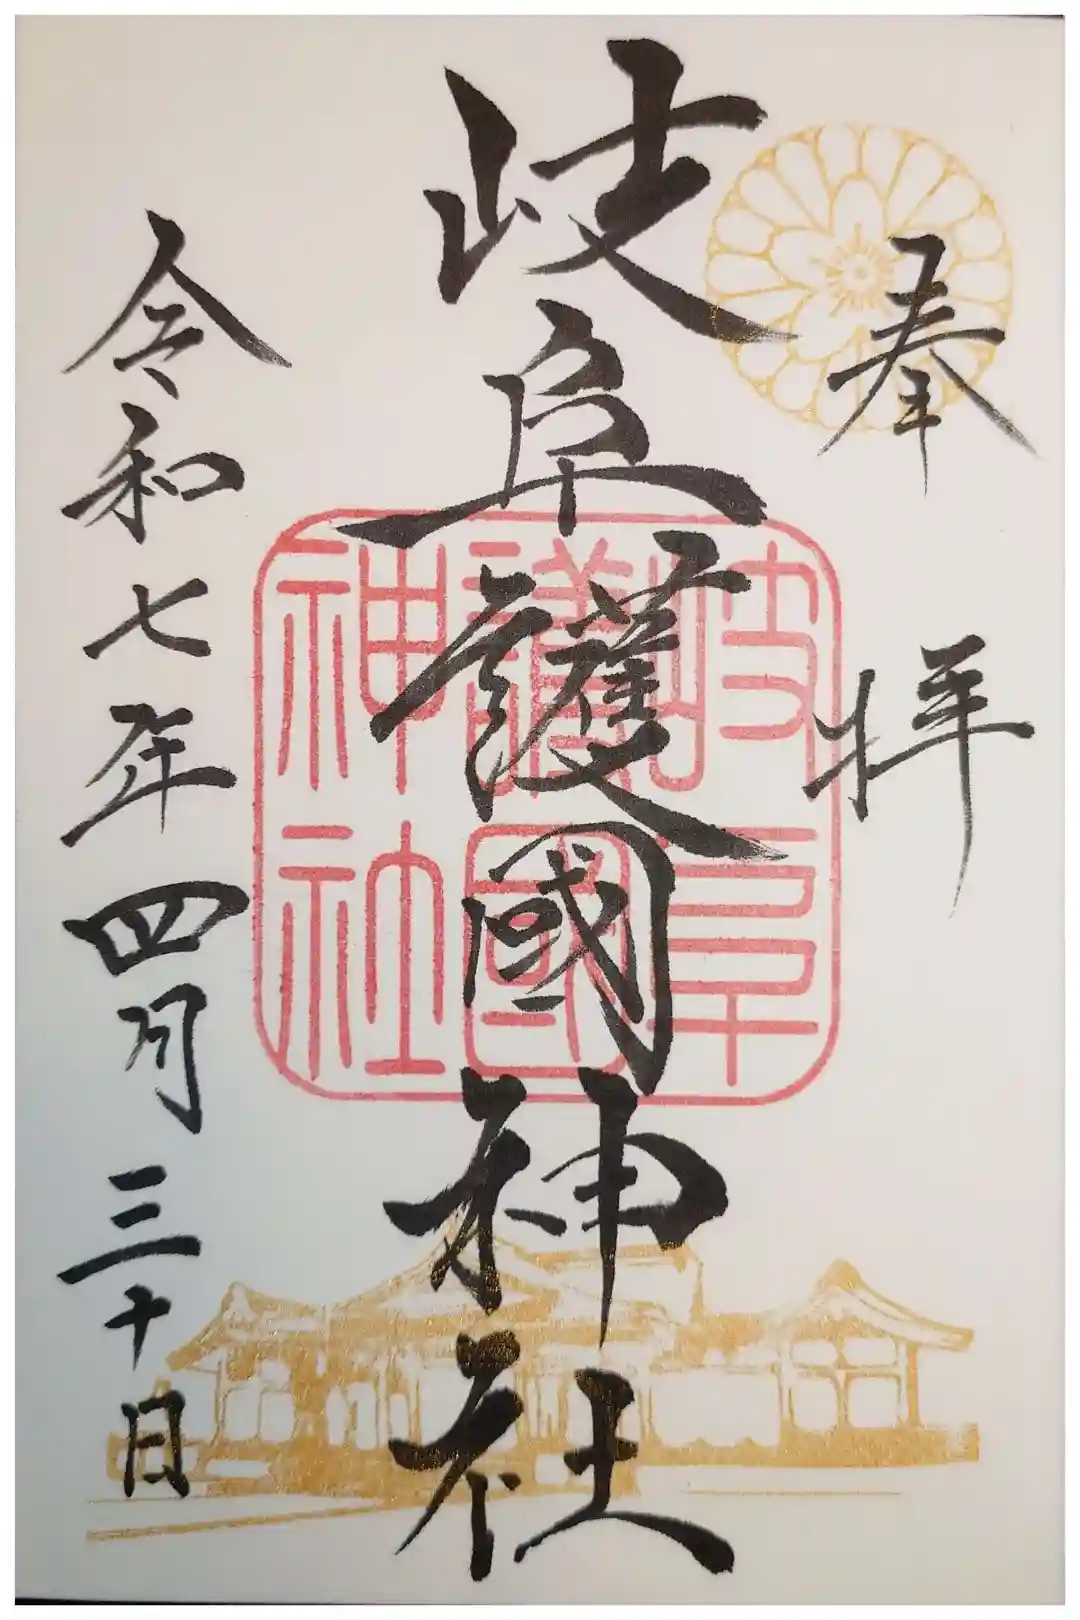 奉拝
岐阜護國神社
岐阜
護國
神社
令和七年四月三十日